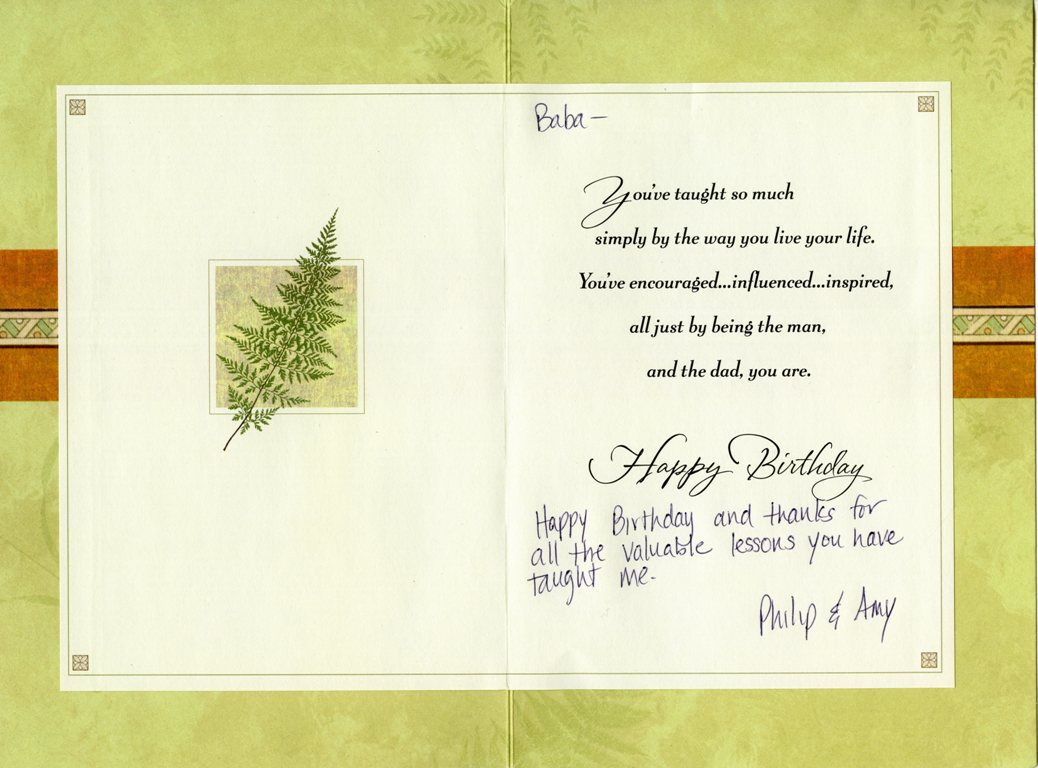 Baba—
You've taught so much
simply by the way you live your life.
You've encouraged...influenced...inspired,
all just by being the man,
and the dad, you are.
Happy Birthday
Happy Birthday and thanks for
all the valuable lessons you have
taught me.
Philip & Amy